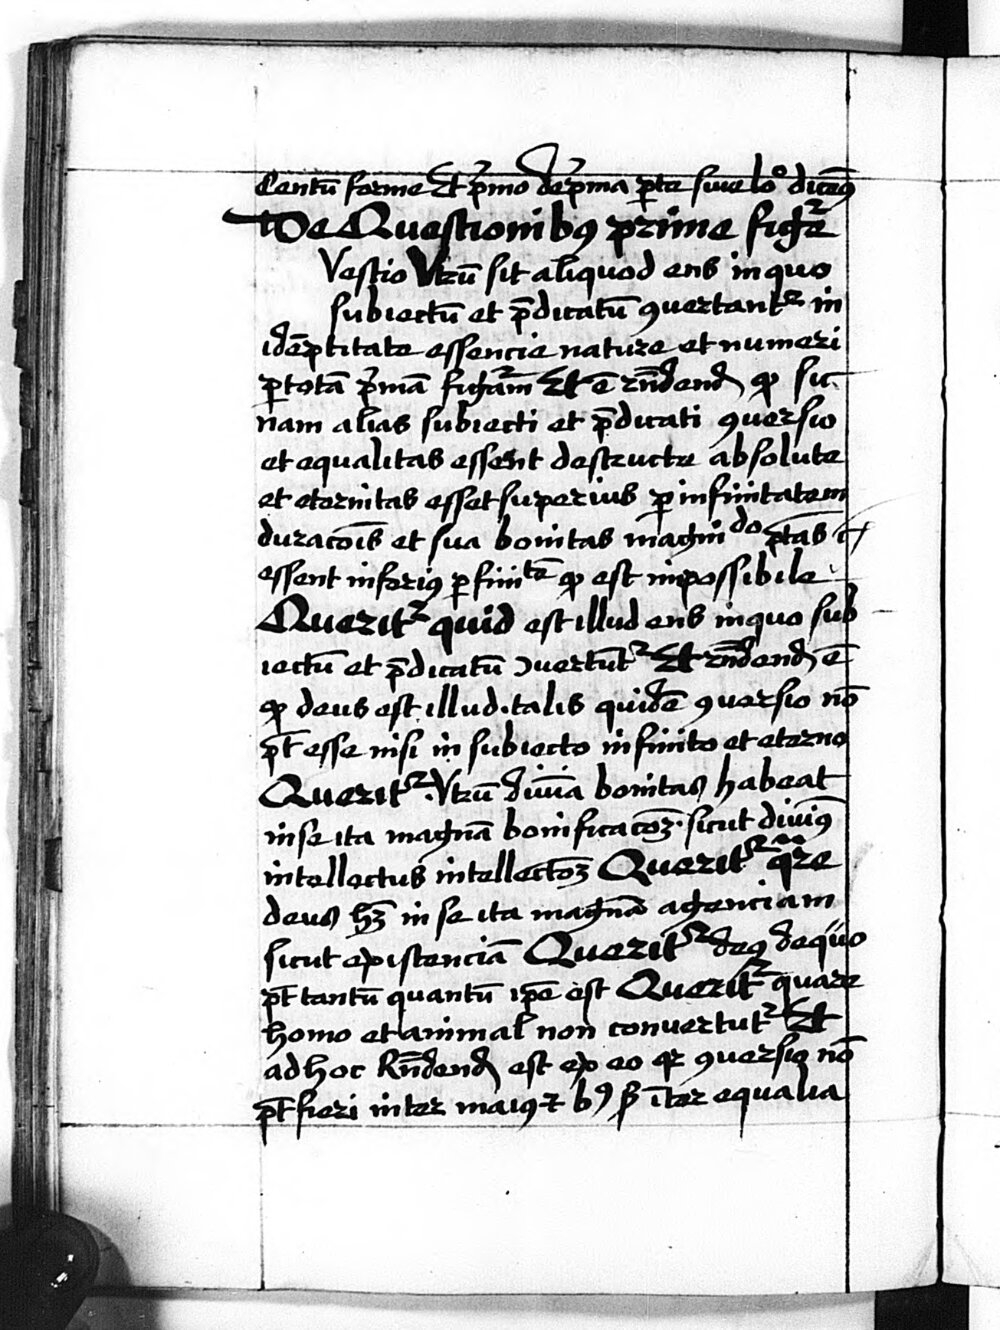 Centū forme Et p̄mo de p̄ma ꝑte siue lo° diceꝰ
De Questionibꝯ prime figᵉ
Vestio Vtrū sit aliquod ens in quo
subiectū et p̄dicatū ꝯuertantᵘʳ in
idēptitate essencie nature et numeri
ꝑ totā p̄mā figᵃm Et ē rn̄dend ꝙ sic
nam alias subiecti et p̄dicati ꝯuersio
et equalitas essent destructe absolute
et eternitas esset superius ꝑ infinitatem
duracōis et sua bonitas magnᵈᵒ ptās
essent inferiꝯ ꝑ finitᵗᵉ ꝙ est inpossibile
Queritᵘʳ quid est illud ens in quo sub
iectū et p̄dicatū ꝯuertūtᵘʳ Et rn̄dend ē
ꝙ deus est illud. talis quidē ꝯuersio nō
pt̄ esse nisi in subiecto infinito et eterno
Queritᵘʳ. Vtrū diuīa bonitas habeat
in se ita magnā bonificacōꝫ. sicut diuinꝯ
intellectus intellectōꝫ Queritᵘʳ qᵃre
deus hꝫ in se ita magnā agenciam
sicut existenciā Queritᵘʳ deꝯ de quo
pt̄ tantū quantū ip̄e est Queritᵘʳ quare
homo et animal non conuertutᵘʳ Et
ad hoc Rn̄dend est ex eo qꝛ ꝯuersio nō
pt̄ fieri inter maiꝯ ⁊ bꝯ ꝭ īter equalia